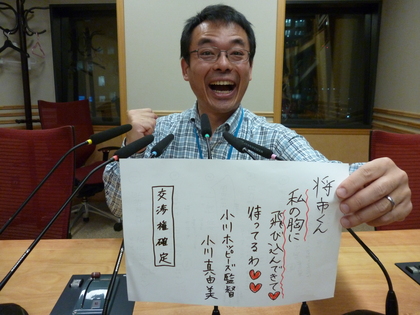 将市くん
私の胸に
飛び込んできて♥
待ってるわ♥♥
小川ホッピーズ監督
小川真由美
交渉権確定